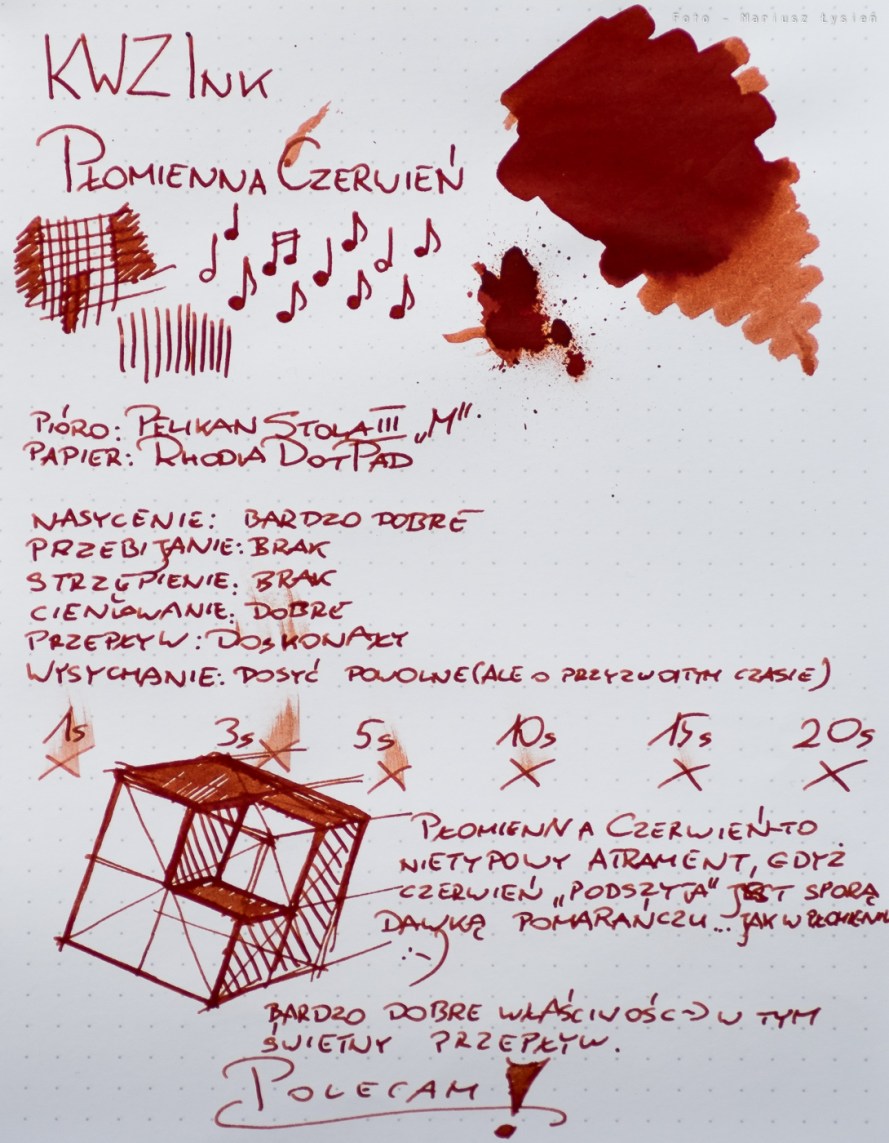 Foto - Mariusz Łysień
KWZ Ink
Płomienna Czerwień
PIÓRO: PELIKAN STOLA III „M”
PAPIER: RHODIA DOTPAD
NASYCENIE: BARDZO DOBRE
PRZEBIJANIE: BRAK
STRZĘPIENIE: BRAK
CIENIOWANIE: DOBRE
PRZEPŁYW: DOSKONAŁY
WYSYCHANIE: DOSYĆ POWOLNE (ALE O PRZYZWOITYM CZASIE)
1s 3s 5s 10s 15s 20s
PŁOMIENNA CZERWIEŃ-TO
NIETYPOWY ATRAMENT, GDYŻ
CZERWIEŃ „PODSZYTA” JEST SPORĄ
DAWKĄ POMARAŃCZU... JAK W PŁOMIENIU
:-)
BARDZO DOBRE WŁAŚCIWOŚCI W TYM
ŚWIETNY PRZEPŁYW.
POLECAM!